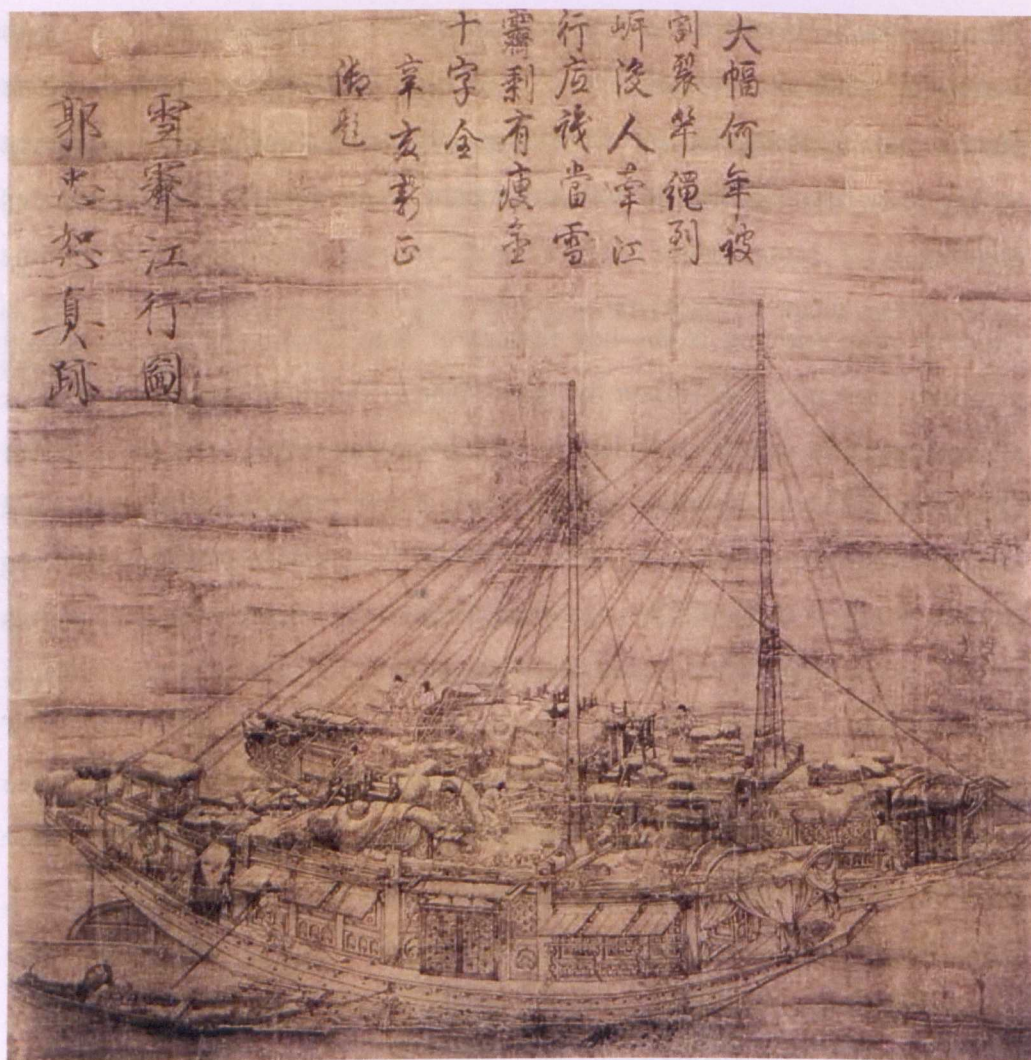 大幅何年被
割裂牽繩到
岸沒人牽江
行应識當雪
霽剩有瘦金
十字全
辛亥新正
御題
雪霽江行圖
郭忠恕真跡